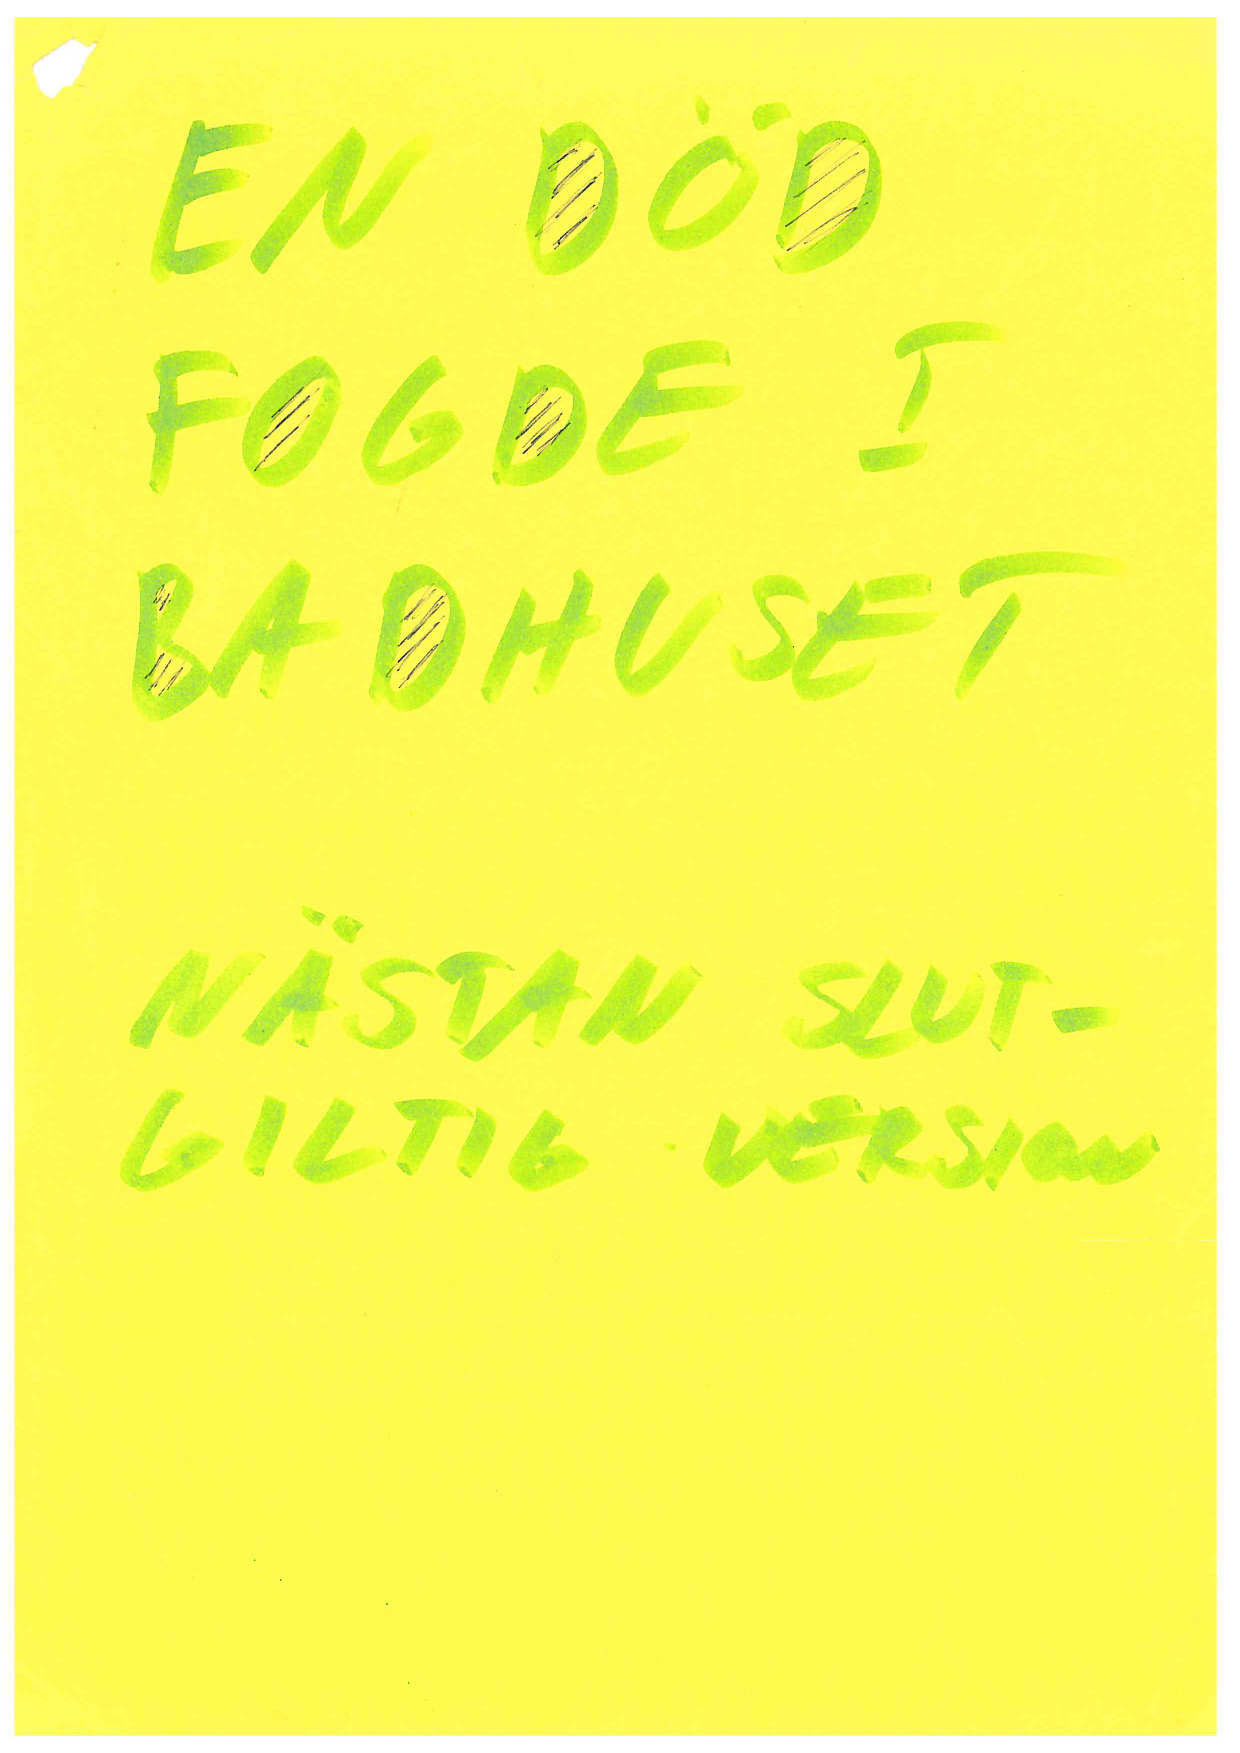 EN DÖD
FOGDE I
BADHUSET
NÄSTAN SLUT-
GILTIG VERSION